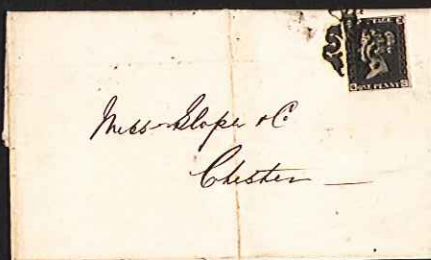 TAGE
ONE PENNY
Mess Slope & Co
Chester